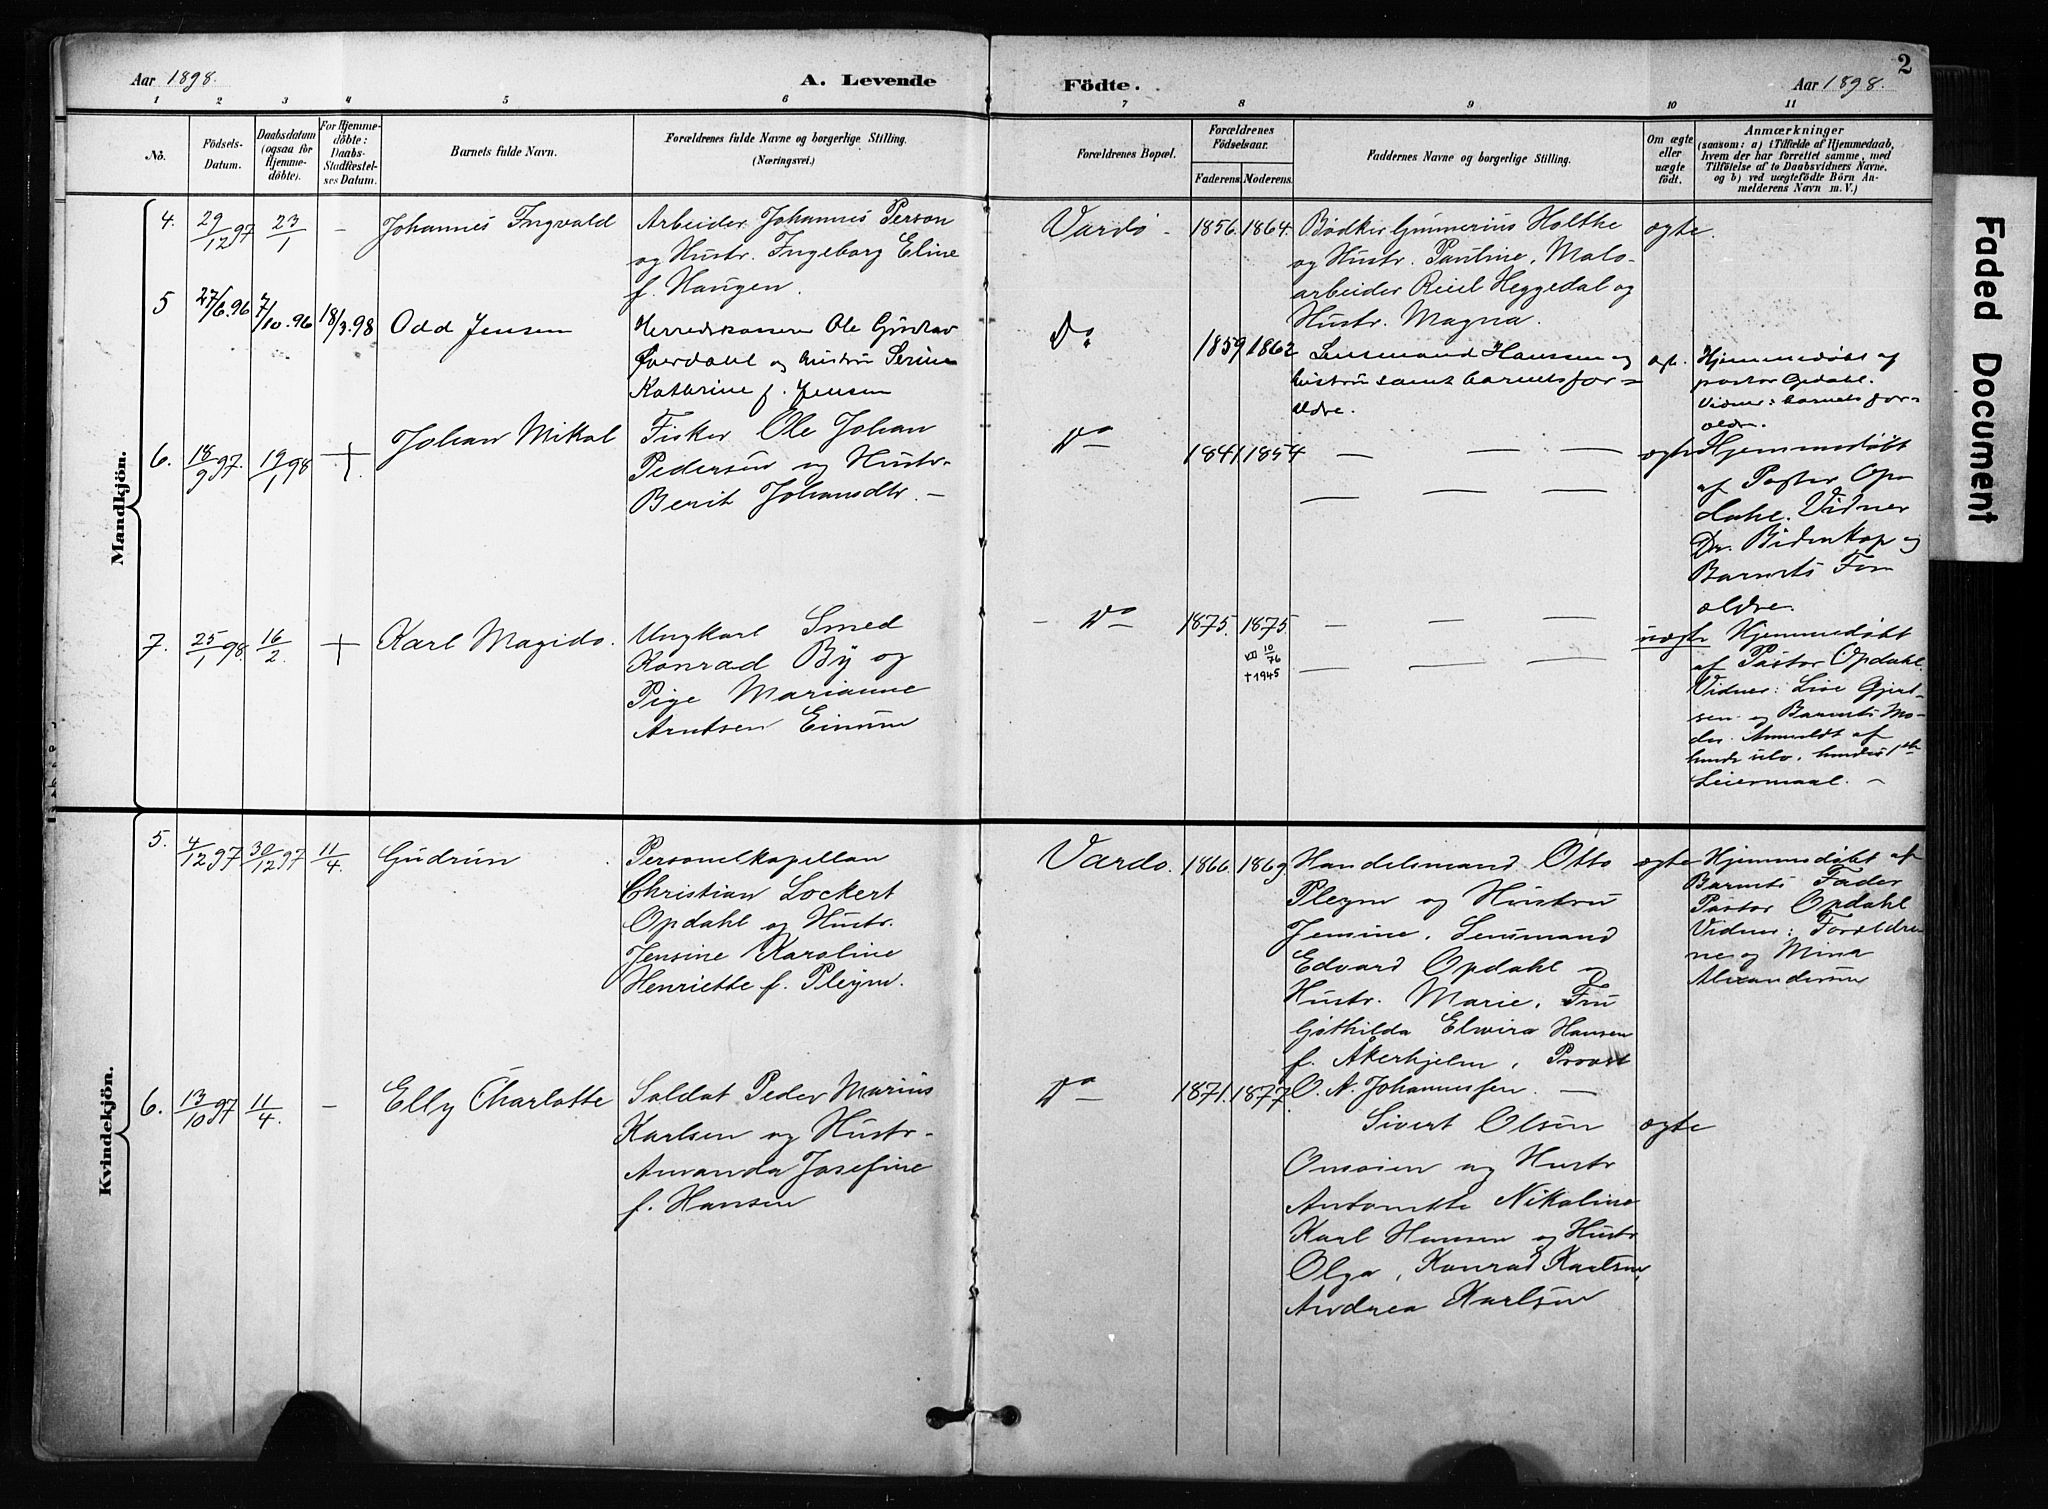 Aar 1898.
A. Levende
Födte.
Aar 1898.
2
1 2 3 4 5 6 7 8 9 10 11
No.
Födsels-
Datum.
Daabsdatum
(ogsaa for
Hjemme-
döbte).
For Hjemme-
döbte:
Daabs-
Stadfæstel-
ses Datum.
Barnets fulde Navn.
Forældrenes fulde Navne og borgerlige Stilling.
(Næringsvei.)
Forældrenes Bopæl.
Forældrenes
Födselsaar.
Faderens.
Moderens.
Faddernes Navne og borgerlige Stilling.
Om ægte
eller
uægte
födt.
Anmærkninger
(saasom: a) i Tilfælde af Hjemmedaab,
hvem der har forrettet samme, med
Tilföielse af to Daabsvidners Navne,
og b) ved uægtefödte Börn An-
melderens Navn m. V.)
Mandkjön.
4.
29/12 97
23/1
-
Johannes Ingvald
Arbeider Johannes Person
og Hustr. Ingeborg Eline
f. Haugen.
Vardö -
1856.
1864.
Bödker Gunnerius Holthe
og Hustr. Pauline, Mals-
arbeider Reiel Heggedal og
Hustr. Magna.
ægte.
5
27/6.96
7/10.96
18/3.98
Odd Jensen
Herredskasserer Ole Gustav
Øverdahl og hustru Serine
Kathrine f. Jensen
Do
1859
1862
Lensmand Hanssen og
hustru samt barnets for-
ældre.
ægt.
Hjemmedøbt af
pastor Opdahl.
Vidner: barnets for-
ældre.
6.
18/9 97.
19/1 98
+
Johan Mikal
Fisker Ole Johan
Pedersen og Hustr.
Berit Johansdtr. -
Do
1841.
1854
— — —
— — —
ægte
Hjemmedöbt
af Pastor Op-
dahl. Vidner
Dr. Bidenkap og
Barnets For-
ældre.
7.
25/1 98.
16/2.
+
Karl Magido.
Ungkarl Smed
Konrad By og
Pige Marianne
Arntsen Einum
- Do
1875.
1875.
10/76
† 1945
— — —
— — —
uægte
Hjemmedöbt
af Pastor Opdahl.
Vidner: Lise Gjert-
sen og Barnets Mo-
der. Anmeldt af
hendes 1ste
Leiermaal. -
Kvindekjön.
5.
4/12 97
30/12 97
11/4.
Gudrun
Personelkapellan
Christian Lockert
Opdahl og Hustr.
Jensine Karoline
Henriette f. Pleym.
Vardö.
1866.
1869
Handelsmand Otto
Pleym og Hustru
Jensine, Lensmand
Edvard Opdahl og
Hustr. Marie, Fru
Gothilda Elvira Hansen
f. Åkerhjelm, Provst
O. N. Johannessen. —
ægte
Hjemmedöbt af
Barnets Fader
Pastor Opdahl
Vidner: Forældre-
ne og Mina
Alexandersen
6.
13/10 97
11/4.
-
Elly Charlotte
Soldat Peder Marius
Karlsen og Hustr.
Amanda Josefine
f. Hansen
Do
1871.
1877.
Sivert Olsen
Onsöien og Hustr
Antonette Nikoline
Karl Hansen og Hustr
Olga, Konrad Karlsen,
Andrea Karlsen
ægte
Faded Document